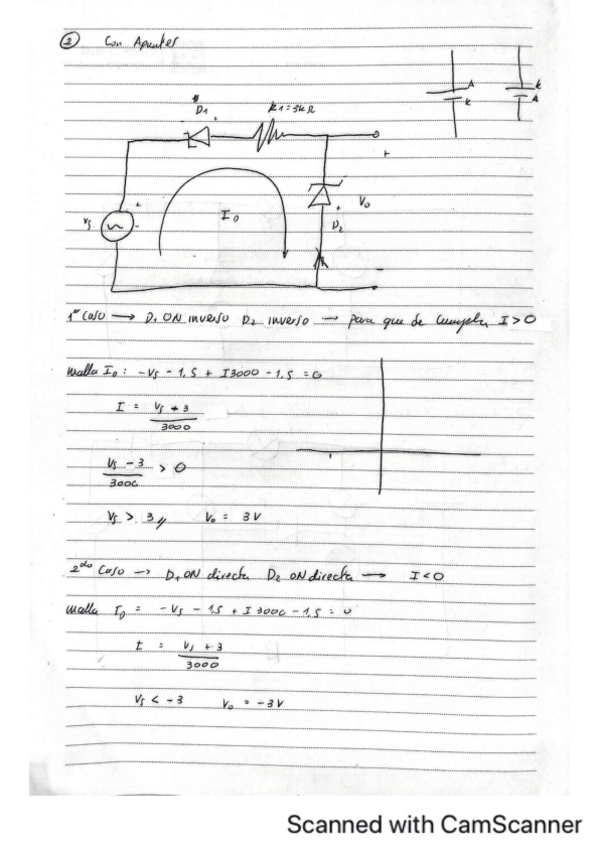 2 Con Apuntes
A
K
K
A
D1
R1=3kΩ
+
Vs
+
-
I0
+
V0
D2
-
1er Caso → D1 ON inverso D2 inverso → para que se cumpla I>0
malla I0: -Vs - 1,5 + I3000 - 1,5 = 0
I = Vs + 3
3000
Vs - 3 > 0
3000
Vs > 3 // V0 = 3V
2do Caso → D1 ON directa D2 ON directa → I<0
malla I0 = -Vs - 1,5 + I3000 - 1,5 = 0
I = Vs + 3
3000
Vs < -3 V0 = -3V
Scanned with CamScanner